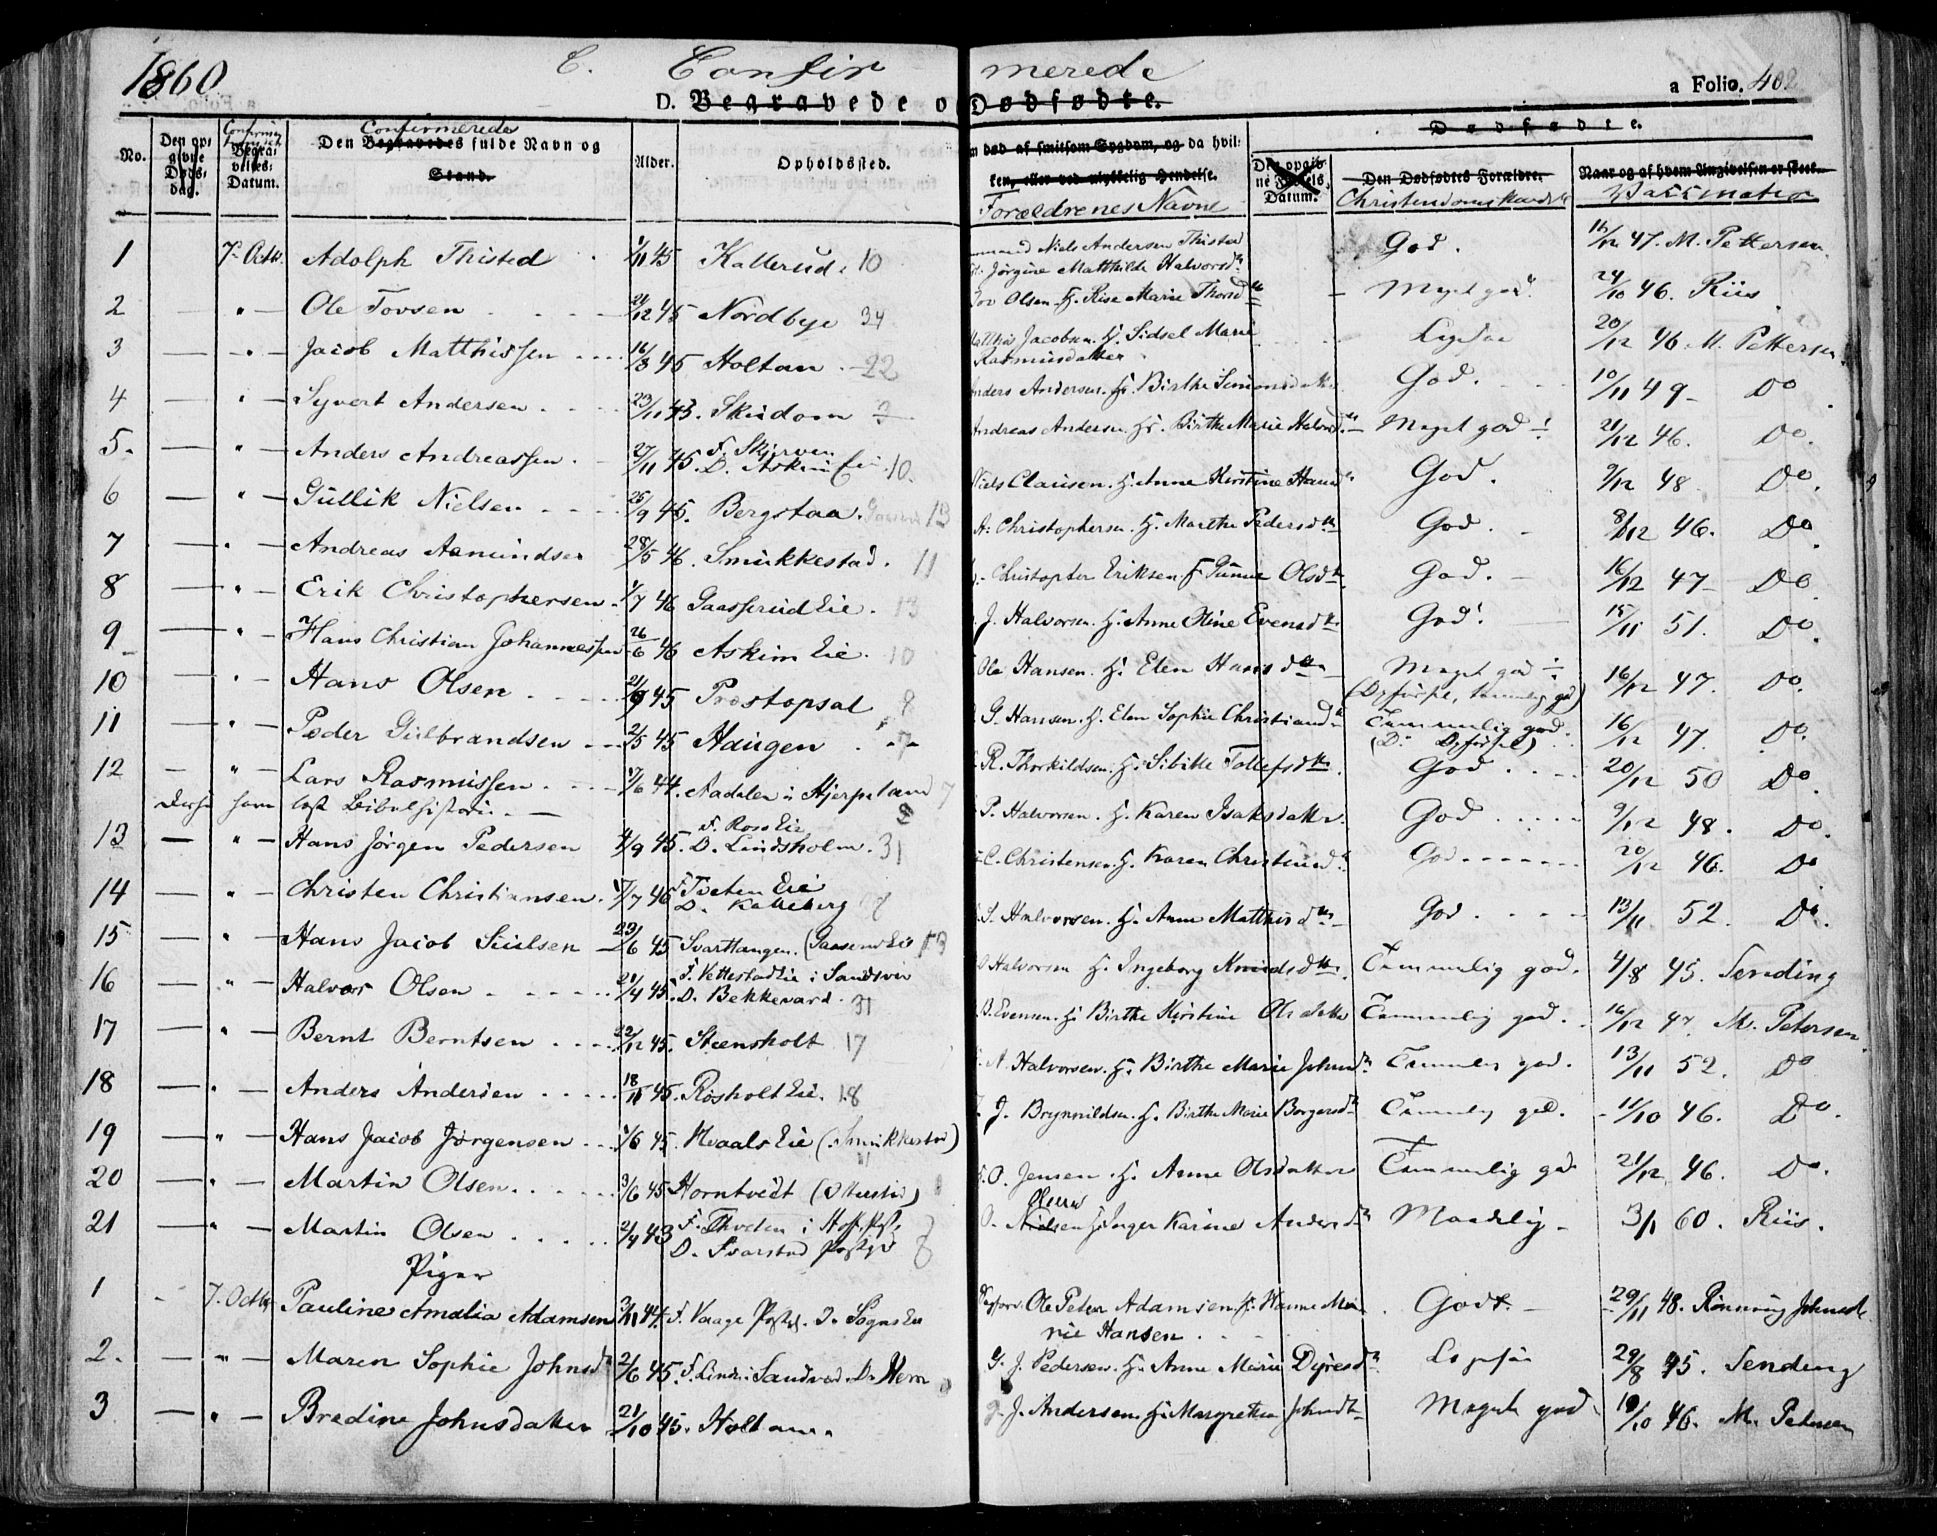 1860 C. Confirmerede a Folio. 402
D. Begravede o Dødfødte.
No. Den opgivne Døds-dag. Begravelses-Datum. Confirmeredes Den Begravedes fulde Navn og Stand. Alder. Opholdssted. død af smitsom Sygdom, og da hvilken, eller ved ulykkelig Hendelse. Forældrenes Navne Dødfødte. Datum. Den Dødfødtes Forældre. Christendomskundsk Naar og af hvem Angivelsen er skeet.
1 7 Octb. Adolph Thisted 1/11 45 Kallerud 10 Niels Andersen Thisted God. 16/12 47. M. Pettersen
Jørgine Matthilde Halvorsd
2 " Ole Tovsen 21/12 45 Nordbye 34 Tov Olsen H. Rise Marie Thorsd Meget god. 24/10 46. Riis
3 " Jacob Matthissen 16/8 45 Holtan 22 Matthis Jacobsen. H. Sidsel Marie Ligesaa 20/12 46. M. Pettersen
Rasmusdatter
4 " Syvert Andersen 23/11 45. Skidom 3 Anders Andersen. H. Birthe Simonsdatter God. 10/11 49 Do
5. " Anders Andreassen 27/11 45 F. Skjerven Andreas Andersen. H. Birthe Marie Halvd. Meget god 21/12 46. Do.
D. Askim Eie 10.
6 " Gullik Nielsen 25/9 45. Bergstaa. 13 Niels Clausen. H. Anne Kirstine Hansd God. 9/12 48 Do.
7 " Andreas Asmundsen 28/5 46. Smukkestad. 11 A. Christophersen. H. Marthe Pedersd God. 8/12 46. Do.
8 " Erik Christophersen 1/7 46 Gaasserud Eie. 13 Christopher Eriksen H. Gunne Olsd God. 16/12 47 Do
9 " Hans Christian Johannessen 26/6 46 Askim Eie. 10 J. Halvorsen. H. Anne Oline Evensd God. 15/11 51. Do.
10 " Hans Olsen 21/9 45 Prestopsal 8 Ole Hansen. H. Elen Hansd Meget god 16/12 47. Do.
(Opførsel, temmelig god)
11 " Peder Gulbrandsen 2/5 45 Haugen 7 G. Hansen. H. Elen Sophie Christiansd Temmelig god. 16/12 47. Do.
(Do Opførsel)
12 " Lars Rasmussen 17/6 44. Aadalen i Hjerpeland 7 R. Thorkildsen. H. Sibille Tollefsd God 20/12 50 Do.
læst Bibelhistorie.
13 " Hans Jørgen Pedersen 4/9 45. F. Ross Eie P. Halvorsen. H. Karen Isaksdatter. God 9/12 48. Do.
D. Lindsholm. 31
14 " Christen Christiansen. 17/7 46 F. Toeten Eie C. Christensen. H. Karen Christensd God 20/12 46. Do
D. Kalleberg
15 " Hans Jacob 23/6 45 Svarttangen. (Gaaserud Eie 13 S. Halvorsen. H. Anne Matthisd God 13/11 52. Do.
16 " Halvor Olsen 21/4 45. F. Vettestad Eie i Sandsvær O Halvorsen H. Ingeborg Knudsd Temmelig god. 4/8 45. Sending
D. Bekkevard. 31
17 " Bernt Berntsen 22/12 45. Steensholt 17 B. Evensen. H. Birthe Kirstine Olsdatter Temmelig god. 16/12 47. M. Petersen
18 " Anders Andersen 18/11 45. Røsholt Eie. 18 A. Halvorsen. H. Birthe Marie Johnsd Temmelig god. 13/11 52. Do
19 " Hans Jacob Jørgensen 1/6 45. Hvaals Eie (Smukkestad) J. Brynnildsen. H. Birthe Marie Borgersd Temmelig god. 11/10 46. Do.
20 " Martin Olsen. 3/6 45 Horntvedt (Otterstad) O. Jensen. H. Anne Olsdatter Temmelig god 21/12 46. Do.
21 " Martin Olsen 2/4 43 F. i Hoff. Pgd. O. Nielsen H. Inger Karine Andersd Maadelig 3/1 60. Riis.
D. Svarstad
Piger
1 7. Octb Pauline Amalia Adamsen 44. F. Vaage D. Sogns Eie Ole Peter Adamsen H. Hanne Ma Godt. 29/11 48. Rønning
rie Hansen
2. " Maren Sophie Johnsd 2/6 45. F. Linde i Sandsvær D. Hem J. Pedersen. H. Anne Marie Dyresd Ligesaa 29/8 45. Sending
3 " Bredine Johnsdatter 21/10 45. Holtan. J. Andersen. H. Margrethe Johnsd Meget god 18/10 46. M. Petersen